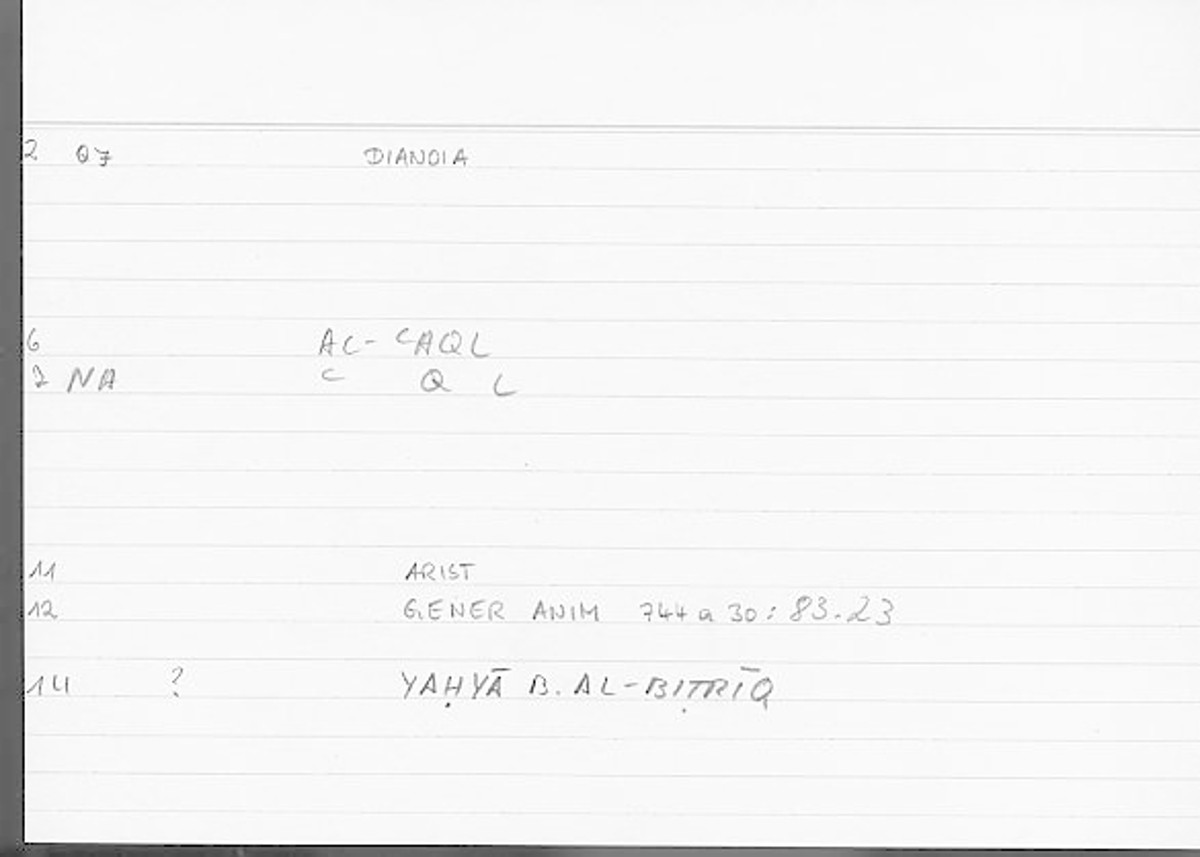 2 07 DIANOIA
6 AL- ʿAQL
7 NA ʿ Q L
11 ARIST
12 GENER ANIM 744 a 30 : 83.23
14 ? YAḤYĀ B. AL-BIṬRĪQ